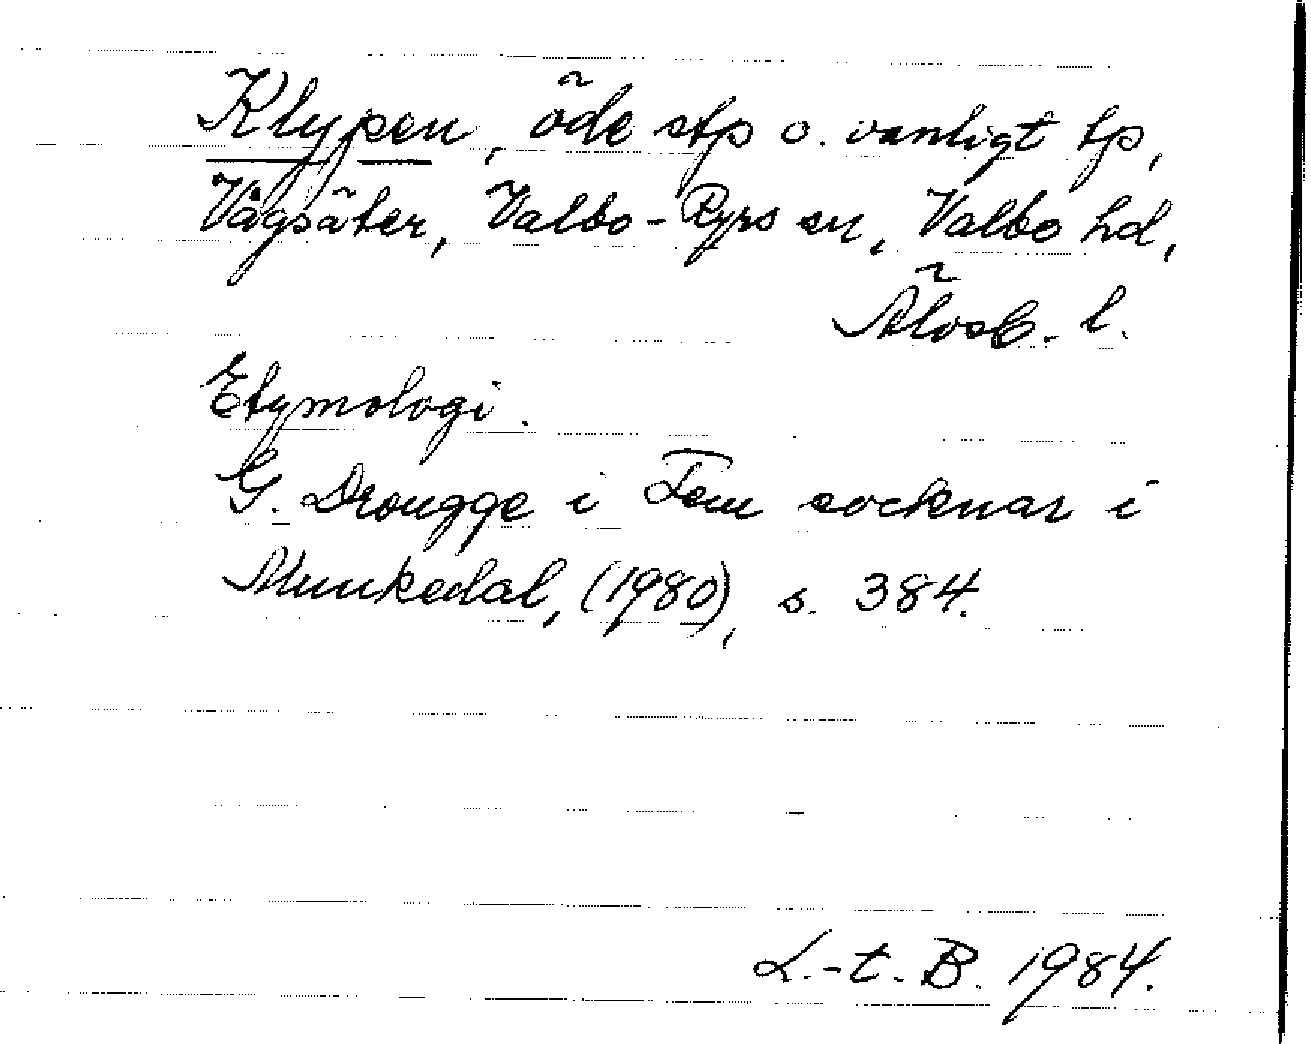 Klypen, öde stp o. vanligt tp,
Vågsäter, Valbo-Ryrs sn, Valbo hd,
Älvsb. l.
Etymologi.
G. Drougge i Fem socknar i
Munkedal, (1980), s. 384.
L.-t. B. 1984.